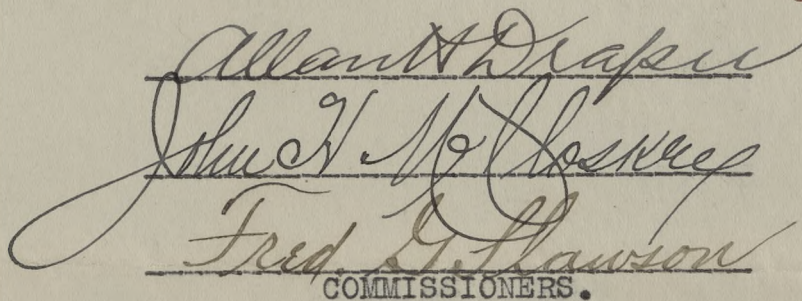 Allan H Draper
John H McCloskrey
Fred. G. Clawson
COMMISSIONERS.